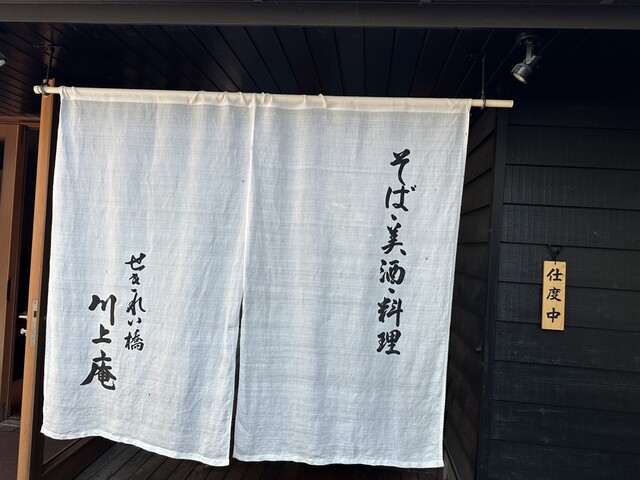 そば・美酒・料理
せきれい橋
川上庵
仕度中